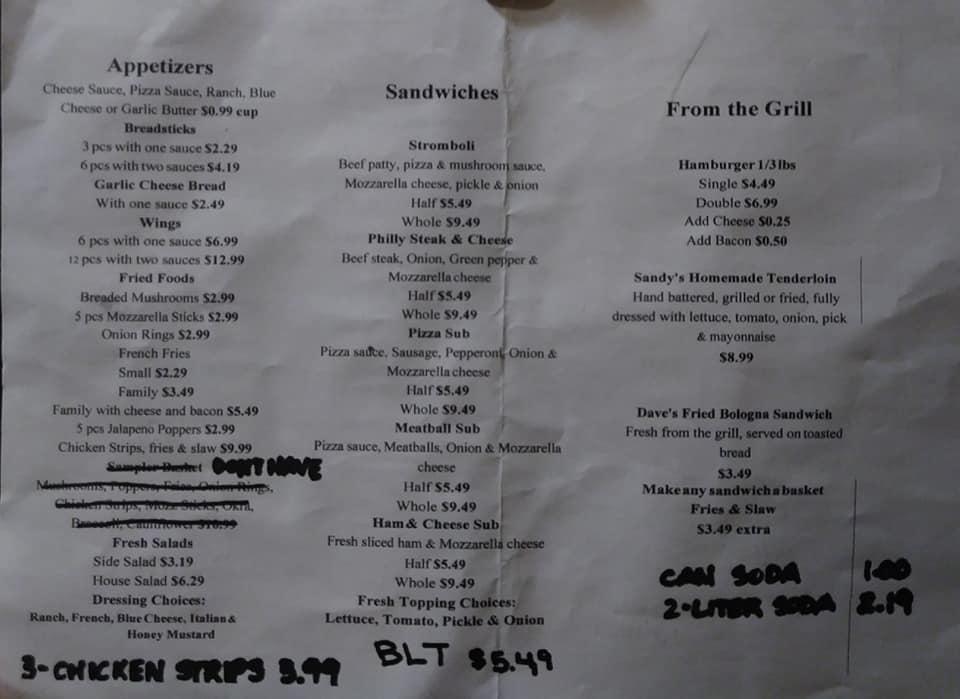 Appetizers
Cheese Sauce, Pizza Sauce, Ranch, Blue
Cheese or Garlic Butter $0.99 cup
Breadsticks
3 pcs with one sauce $2.29
6 pcs with two sauces $4.19
Garlic Cheese Bread
With one sauce $2.49
Wings
6 pcs with one sauce $6.99
12 pcs with two sauces $12.99
Fried Foods
Breaded Mushrooms $2.99
5 pcs Mozzarella Sticks $2.99
Onion Rings $2.99
French Fries
Small $2.29
Family $3.49
Family with cheese and bacon $5.49
5 pcs Jalapeno Poppers $2.99
Chicken Strips, fries & slaw $9.99
Sampler Basket DONT HAVE
Mushrooms, Poppers, Fries, Onion Rings,
Chicken Strips, Mozz Sticks, Okra,
Broccoli, Cauliflower
Fresh Salads
Side Salad $3.19
House Salad $6.29
Dressing Choices:
Ranch, French, Blue Cheese, Italian &
Honey Mustard
3-CHICKEN STRIPS 3.99
Sandwiches
Stromboli
Beef patty, pizza & mushroom sauce,
Mozzarella cheese, pickle & onion
Half $5.49
Whole $9.49
Philly Steak & Cheese
Beef steak, Onion, Green pepper &
Mozzarella cheese
Half $5.49
Whole $9.49
Pizza Sub
Pizza sauce, Sausage, Pepperoni, Onion &
Mozzarella cheese
Half $5.49
Whole $9.49
Meatball Sub
Pizza sauce, Meatballs, Onion & Mozzarella
cheese
Half $5.49
Whole $9.49
Ham & Cheese Sub
Fresh sliced ham & Mozzarella cheese
Half $5.49
Whole $9.49
Fresh Topping Choices:
Lettuce, Tomato, Pickle & Onion
BLT $5.49
From the Grill
Hamburger 1/3 lbs
Single $4.49
Double $6.99
Add Cheese $0.25
Add Bacon $0.50
Sandy's Homemade Tenderloin
Hand battered, grilled or fried, fully
dressed with lettuce, tomato, onion, pick
& mayonnaise
$8.99
Dave's Fried Bologna Sandwich
Fresh from the grill, served on toasted
bread
$3.49
Make any sandwich a basket
Fries & Slaw
$3.49 extra
CAN SODA 1.00
2-LITER SODA 2.19